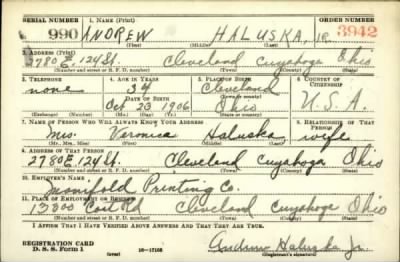 SERIAL NUMBER 1. NAME (Print) ORDER NUMBER
990 ANDREW HALUSKA, JR. 3942
(First) (Middle) (Last)
2. ADDRESS (Print)
2780 E. 124 St. Cleveland Cuyahoga Ohio
(Number and street or R. F. D. number) (Town) (County) (State)
3. TELEPHONE 4. AGE IN YEARS 5. PLACE OF BIRTH 6. COUNTRY OF CITIZENSHIP
none 34 Cleveland
DATE OF BIRTH
Oct 23 1906 Ohio U.S.A.
(Exchange) (Number) (Mo.) (Day) (Yr.) (State or country)
7. NAME OF PERSON WHO WILL ALWAYS KNOW YOUR ADDRESS 8. RELATIONSHIP OF THAT PERSON
Mrs. Veronica Haluska wife
(Mr., Mrs., Miss) (First) (Middle) (Last)
9. ADDRESS OF THAT PERSON
2780 E. 124 St. Cleveland Cuyahoga Ohio
(Number and street or R. F. D. number) (Town) (County) (State)
10. EMPLOYER'S NAME
Manifold Printing Co.
11. PLACE OF EMPLOYMENT OR BUSINESS
13300 Coit Rd Cleveland Cuyahoga Ohio
(Number and street or R. F. D. number) (Town) (County) (State)
I AFFIRM THAT I HAVE VERIFIED ABOVE ANSWERS AND THAT THEY ARE TRUE.
REGISTRATION CARD
D. S. S. Form 1 (over) 16-17105 Andrew Haluska Jr.
(Registrant's signature)